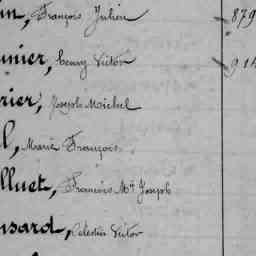 in, François Julien 879
unier, Henry Victor 914
rier, Joseph Michel
l, Marie François
lluet, François Mie Joseph
nsard, Célestin Victor